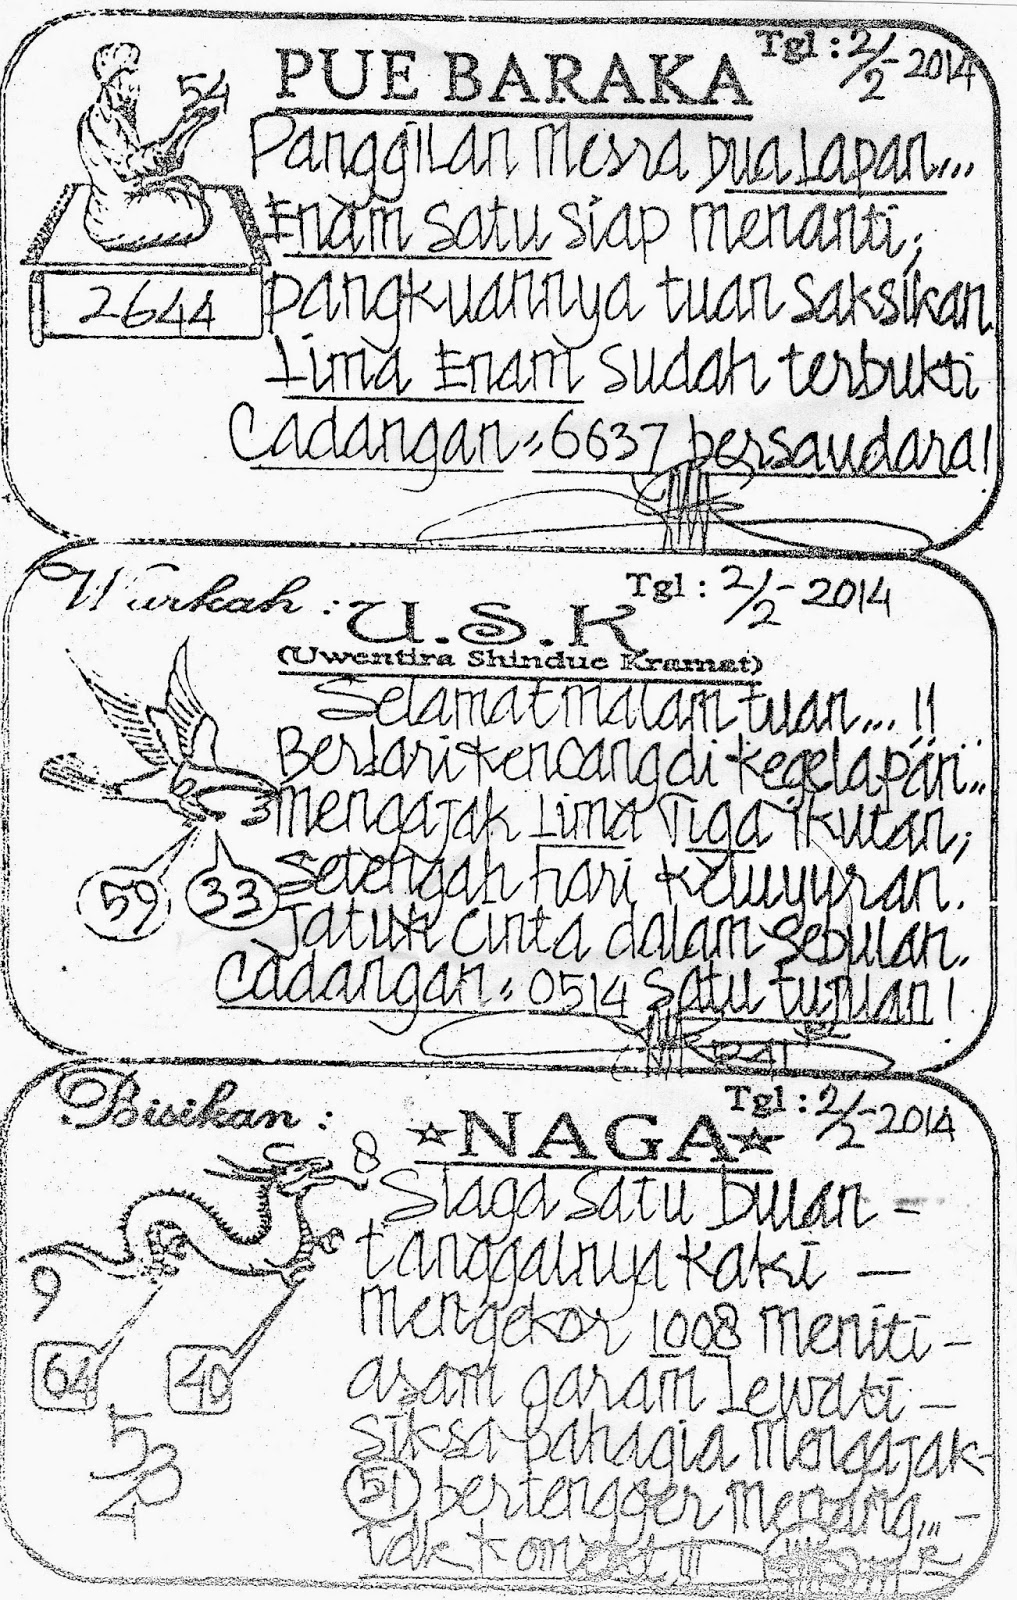 PUE BARAKA
Tgl : 2/2-2014
54
2644
Panggilan Mesra Dua Lapan...
Enam Satu Siap Menanti;
Pangkuannya tuan saksikan.
Lima Enam Sudah terbukti
Cadangan = 6637 bersaudara!
Wurkah :
U.S.K
Tgl : 2/2-2014
(Uwentira Shindue Kramat)
Selamat malam tuan... !!
Berlari kencang di kegelapan...
3
Mengajak Lima Tiga ikutan;
59 33
Setengah hari keluyuran.
Jatuh cinta dalam sebulan.
Cadangan = 0514 Satu tujuan!
Bisikan :
NAGA
Tgl : 2/2-2014
8
9
64 40
5
3
4
Siaga Satu bulan -
tanggalnya kaki -
Mengekor 1008 Meniti -
asam garam Lewati -
Siksa bahagia Mengajak -
51 bertengger Menang... -